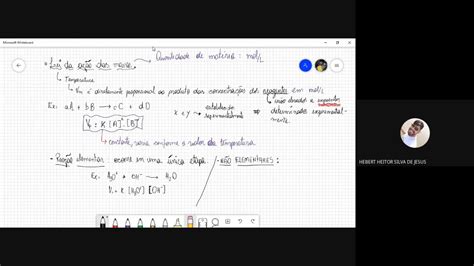 Microsoft Whiteboard
Lei da ação das massas
Quantidade de matéria: mol/L
Temperatura
Vm é diretamente proporcional ao produto das concentrações dos reagentes em mol/L
Ex: aA + bB → cC + dD
x e y → estabelecidos experimentalmente
são elevados a expoentes determinados experimentalmente.
V = K [A]ˣ [B]ʸ
constante, varia conforme o valor da temperatura
- Reação elementar: ocorre em uma única etapa.
- NÃO ELEMENTARES:
Ex: H₃O⁺ + OH⁻ → H₂O
V = K [H₃O⁺] [OH⁻]
HEBERT HEITOR SILVA DE JESUS